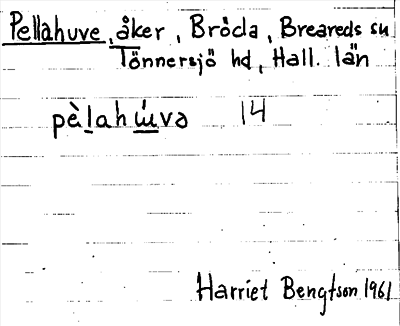 Pellahuve, åker, Bröda, Breareds sn
Tönnersjö hd, Hall. län
pèlahúvə 14
Harriet Bengtson 1961